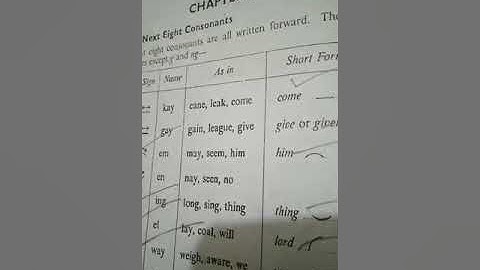 CHAPTER
Next Eight Consonants
eight consonants are all written forward. The
except y and ng—
Sign Name As in Short For
kay cane, leak, come come
gay gain, league, give give or given
em may, seem, him him
en nay, seen, no
ing long, sing, thing thing
el lay, coal, will lord
way weigh, aware, we